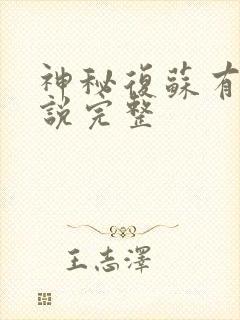 神秘復蘇有
說完整
王志澤